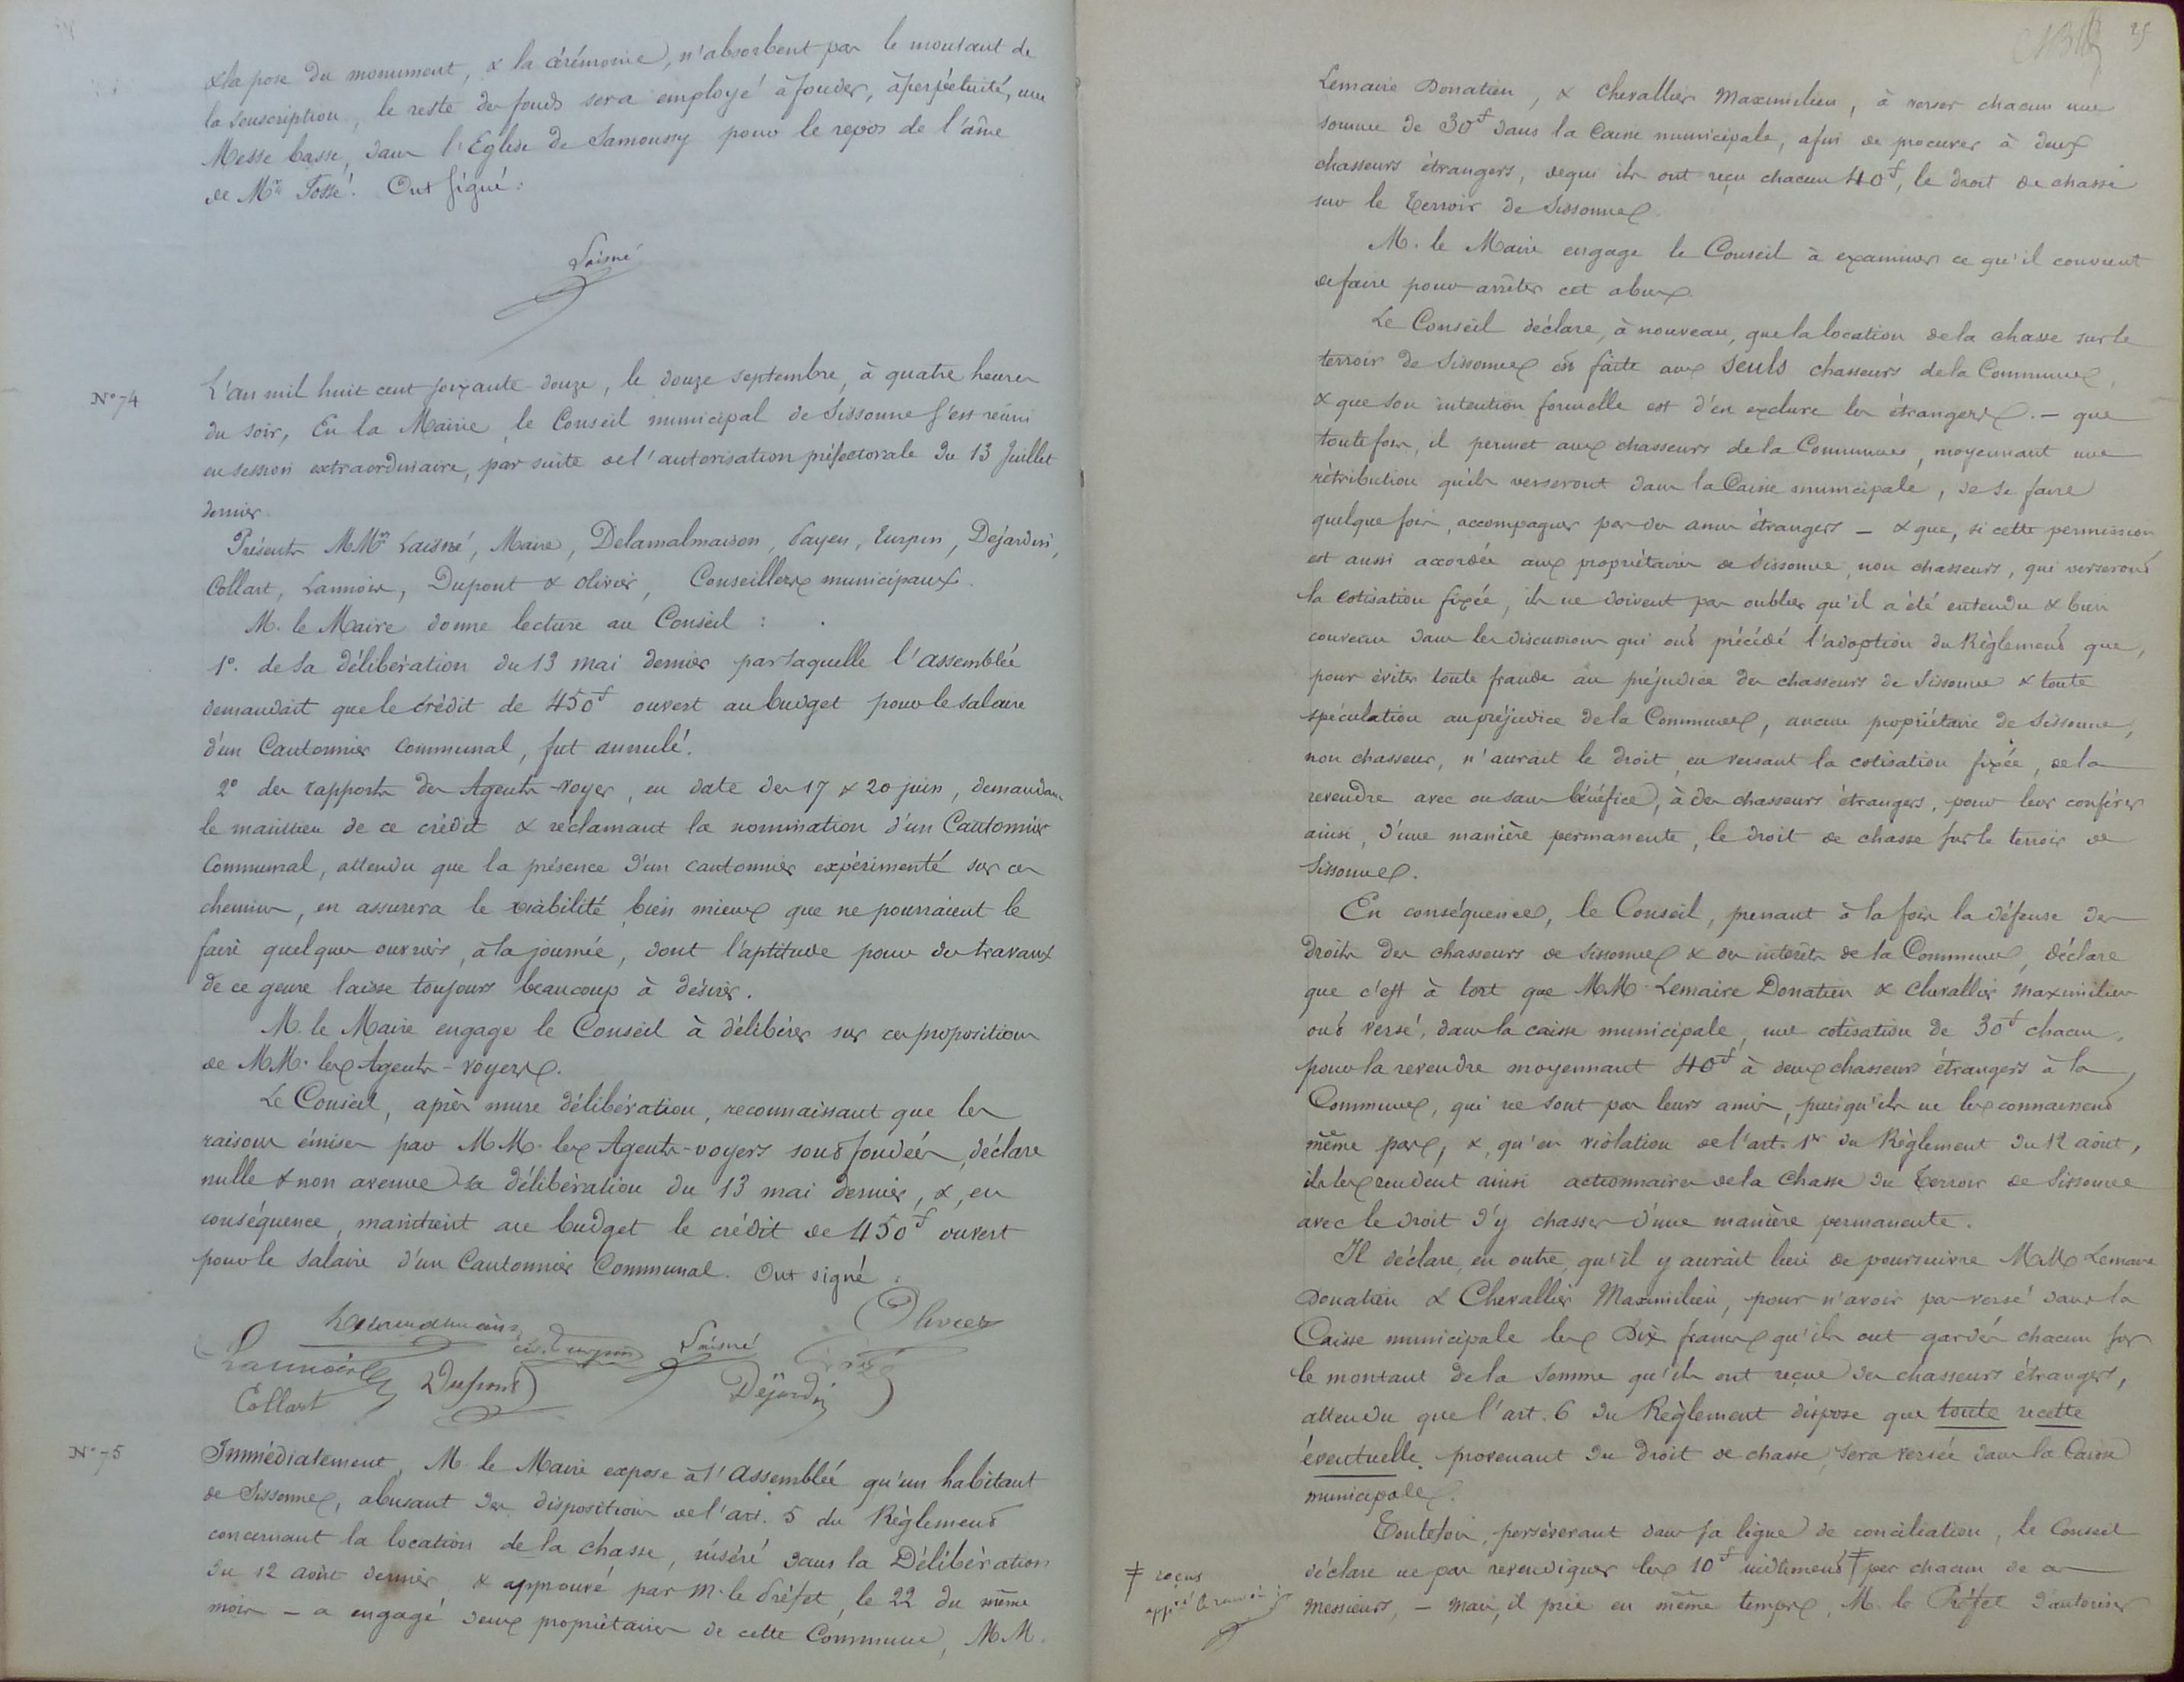 & la pose du monument, & la cérémonie, n'absorbent pas le montant de
la souscription, le reste des fonds sera employé à fonder, à perpétuité, une
Messe basse, dans l'Eglise de Samoussy pour le repos de l'âme
de Mr Fossé. Ont signé :
Laisné
N° 74
L'an mil huit cent soixante-douze, le douze septembre, à quatre heures
du soir, En la Mairie, le Conseil municipal de Sissonne s'est réuni
en session extraordinaire, par suite de l'autorisation préfectorale du 13 Juillet
dernier.
Présents MMrs Laisné, Maire, Delamalmaison, Payen, Turpin, Dejardin,
Collart, Lannois, Dupont & Olivier, Conseillers municipaux.
M. le Maire donne lecture au Conseil :
1°. de la délibération du 13 mai dernier par laquelle l'assemblée
demandait que le crédit de 450f ouvert au budget pour le salaire
d'un Cantonnier communal, fut annulé.
2° des rapports des Agents-voyer, en date des 17 & 20 juin, demandant
le maintien de ce crédit & réclamant la nomination d'un Cantonnier
Communal, attendu que la présence d'un cantonnier expérimenté sur ces
chemins, en assurera le viabilité bien mieux que ne pourraient le
faire quelques ouvriers, à la journée, dont l'aptitude pour des travaux
de ce genre laisse toujours beaucoup à désirer.
M. le Maire engage le Conseil à délibérer sur ces propositions
de MM. les Agents-voyers.
Le Conseil, après mure délibération, reconnaissant que les
raisons émises par MM. les Agents-voyers sont fondées, déclare
nulle & non avenue sa délibération du 13 mai dernier, &, en
conséquence, maintient au budget le crédit de 450f ouvert
pour le salaire d'un Cantonnier Communal. Ont signé :
Delamalmaison Turpin Laisné Olivier
Lannois Dupont
Collart Dejardin
N° 75
Immédiatement, M. le Maire expose à l'Assemblée qu'un habitant
de Sissonne, abusant des dispositions de l'art. 5 du Règlement
concernant la location de la chasse, inséré dans la Délibération
du 12 août dernier & approuvé par M. le Préfet, le 22 du même
mois — a engagé deux propriétaires de cette Commune, MM.
25
Lemaire Donatien, & Chevallier Maximilien, à verser chacun une
somme de 30f dans la Caisse municipale, afin de procurer à deux
chasseurs étrangers, de qui ils ont reçu chacun 40f, le droit de chasse
sur le Terroir de Sissonne.
M. le Maire engage le Conseil à examiner ce qu'il convient
de faire pour arrêter cet abus.
Le Conseil déclare, à nouveau, que la location de la chasse sur le
terroir de Sissonne est faite aux seuls chasseurs de la Commune,
& que son intention formelle est d'en exclure les étrangers. — que
toutefois, il permet aux chasseurs de la Commune, moyennant une
rétribution qu'ils verseront dans la Caisse municipale, de se faire
quelquefois, accompagner par des amis étrangers — & que, si cette permission
est aussi accordée aux propriétaires de Sissonne, non chasseurs, qui verseront
la cotisation fixée, ils ne doivent pas oublier qu'il a été entendu & bien
convenu dans les discussions qui ont précédé l'adoption du Règlement que,
pour éviter toute fraude au préjudice des chasseurs de Sissonne & toute
spéculation au préjudice de la Commune, aucun propriétaire de Sissonne,
non chasseur, n'aurait le droit, en versant la cotisation fixée, de la
revendre avec ou sans bénéfice, à des chasseurs étrangers, pour leur conférer
ainsi, d'une manière permanente, le droit de chasse sur le terroir de
Sissonne.
En conséquence, le Conseil, prenant à la fois la défense des
droits des chasseurs de Sissonne & des intérêts de la Commune, déclare
que c'est à tort que MM. Lemaire Donatien & Chevallier Maximilien
ont versé, dans la caisse municipale, une cotisation de 30f chacun,
pour la revendre moyennant 40f à deux chasseurs étrangers à la
Commune, qui ne sont pas leurs amis, puisqu'ils ne les connaissent
même pas, &, qu'en violation de l'art. 1er du Règlement du 12 août,
ils les rendent ainsi actionnaires de la Chasse du Terroir de Sissonne
avec le droit d'y chasser d'une manière permanente.
Il déclare, en outre, qu'il y aurait lieu de poursuivre MM Lemaire
Donatien & Chevallier Maximilien, pour n'avoir pas versé dans la
Caisse municipale les Dix francs qu'ils ont gardés chacun sur
le montant de la somme qu'ils ont reçue des chasseurs étrangers,
attendu que l'art. 6 du Règlement dispose que toute recette
éventuelle provenant du droit de chasse, sera versée dans la Caisse
municipale.
Toutefois, persévérant dans sa ligne de conciliation, le Conseil
déclare ne pas revendiquer les 10f indûment ‡ par chacun de ces
Messieurs, — mais, il prie en même temps, M. le Préfet d'autoriser
‡ reçus
appvé le renvoi